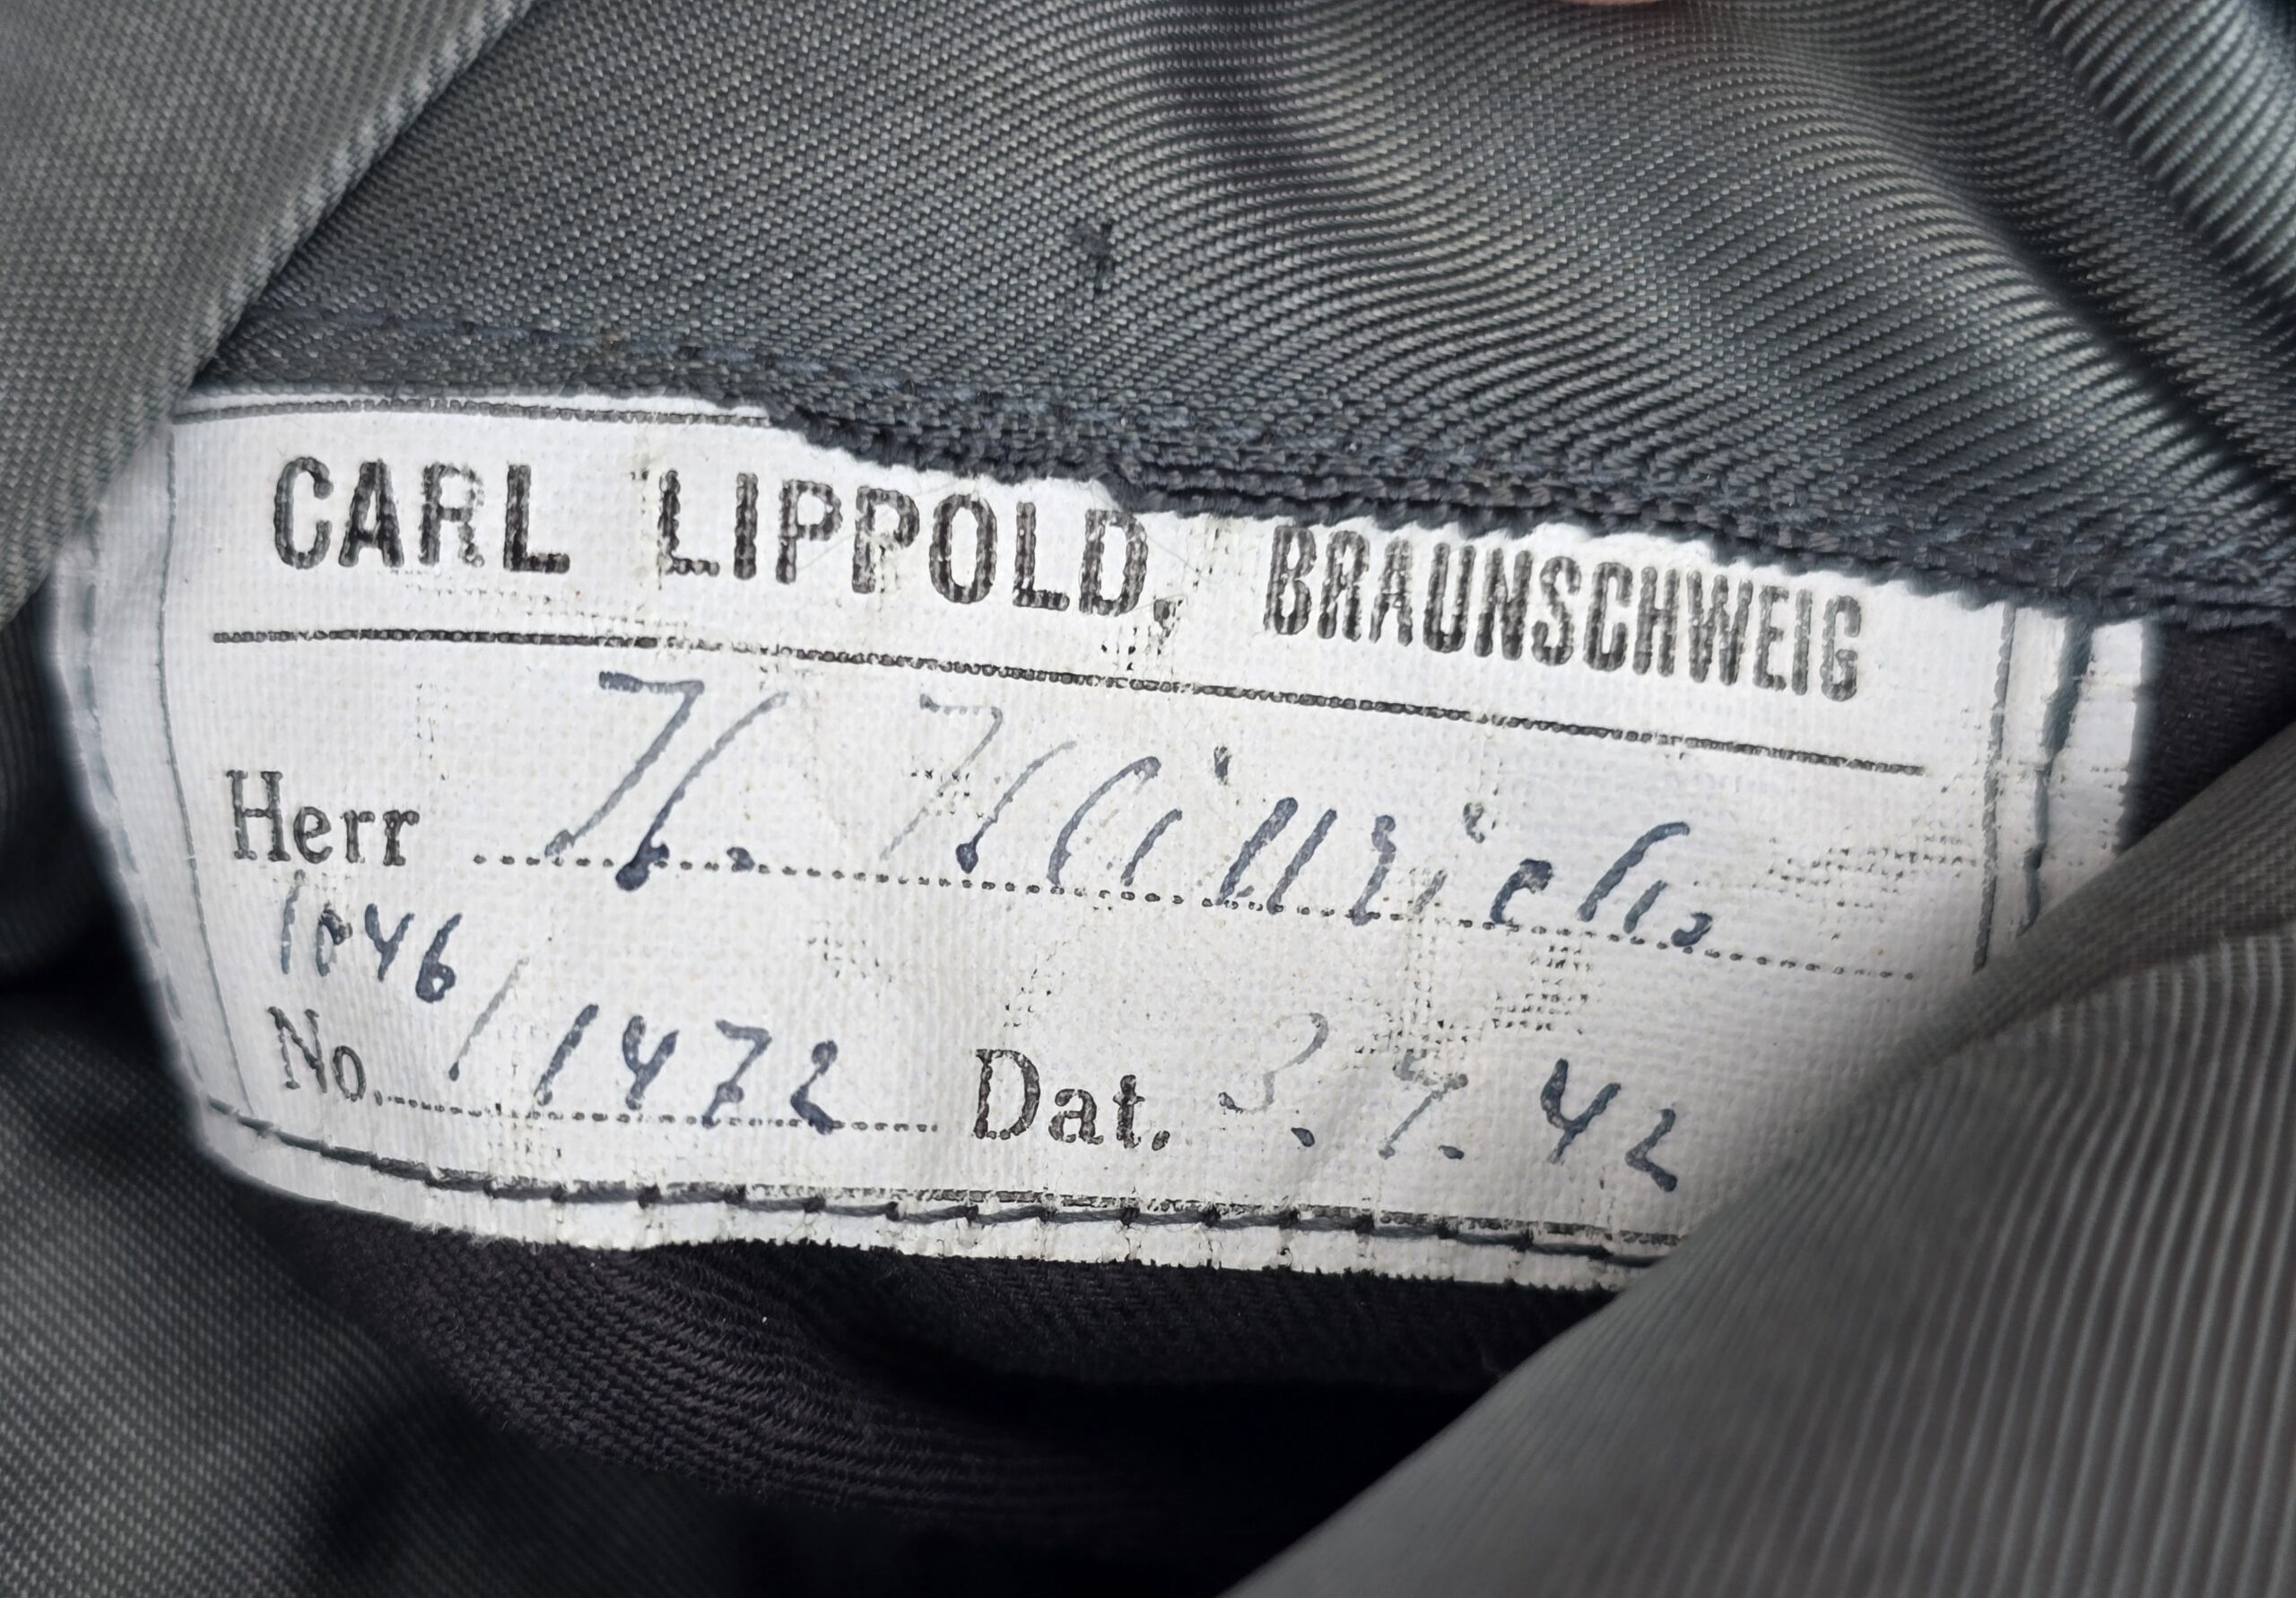 CARL LIPPOLD, BRAUNSCHWEIG
Herr H. Hinrichs
1046/
No. 1472 Dat. 3.9.42